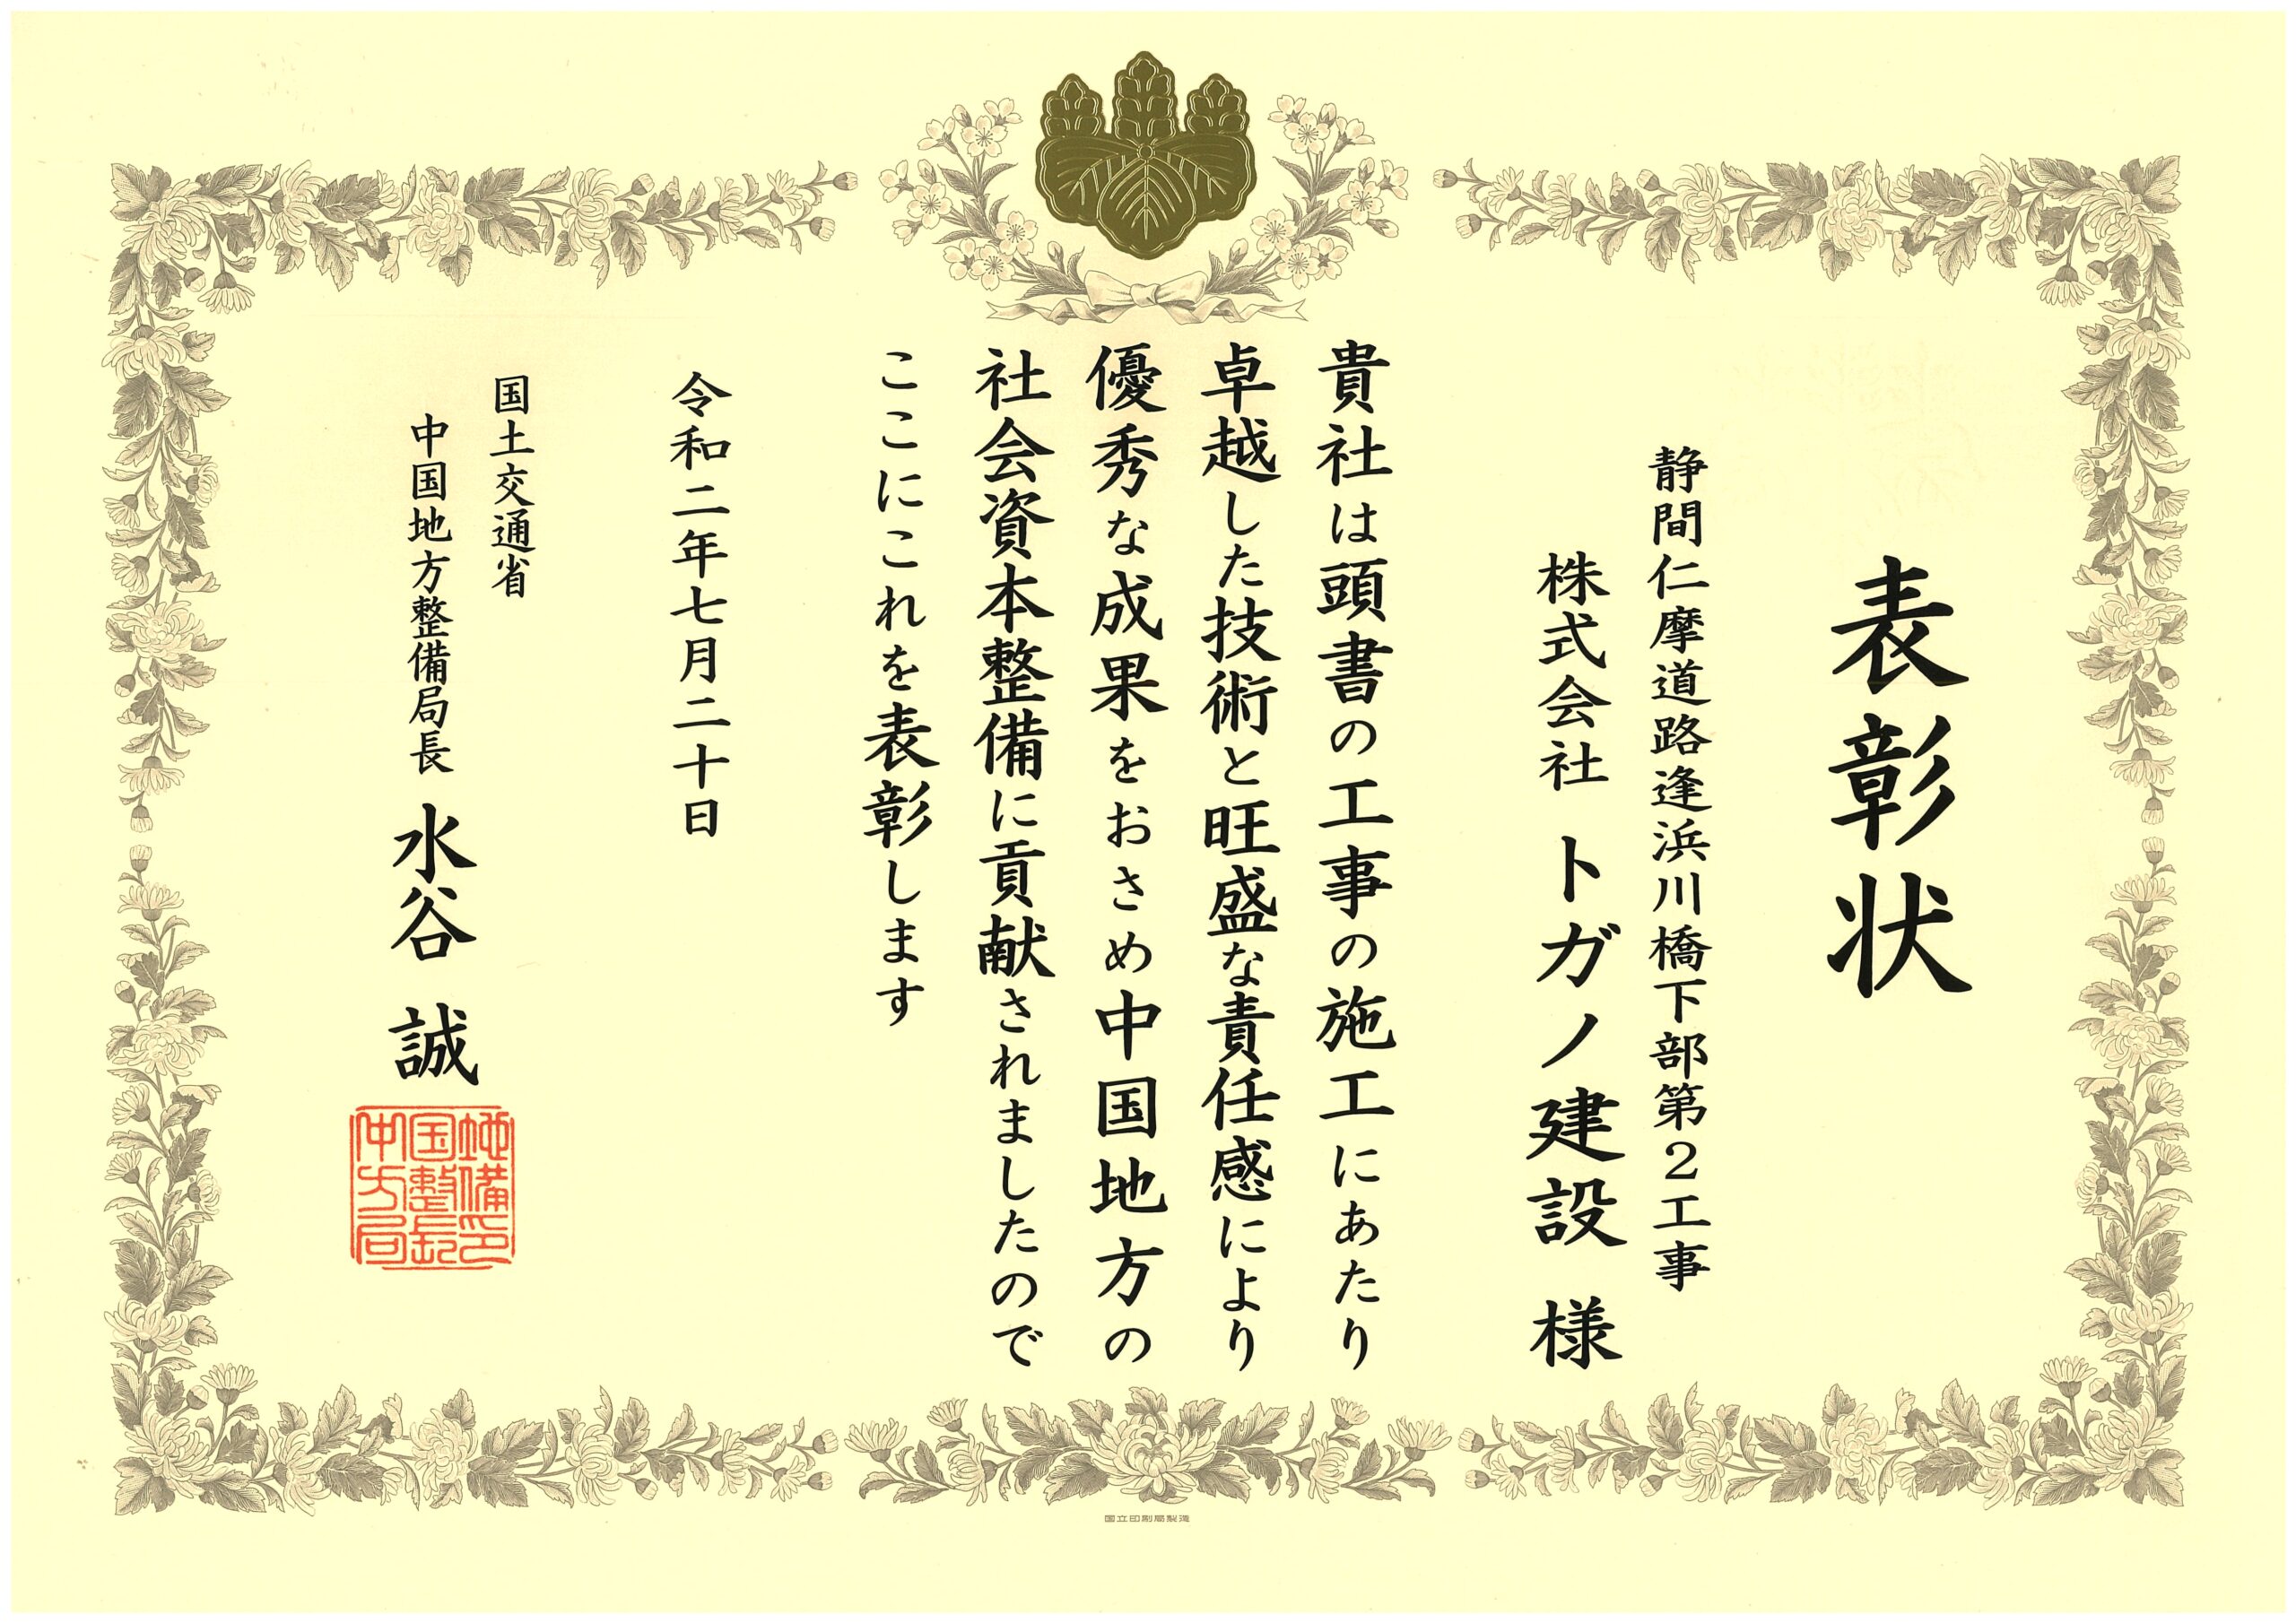 表彰状
静間仁摩道路逢浜川橋下部第2工事
株式会社 トガノ建設 様
貴社は頭書の工事の施工にあたり
卓越した技術と旺盛な責任感により
優秀な成果をおさめ中国地方の
社会資本整備に貢献されましたので
ここにこれを表彰します
令和二年七月二十日
国土交通省
中国地方整備局長 水谷 誠
中国地方整備局長印
国立印刷局製造